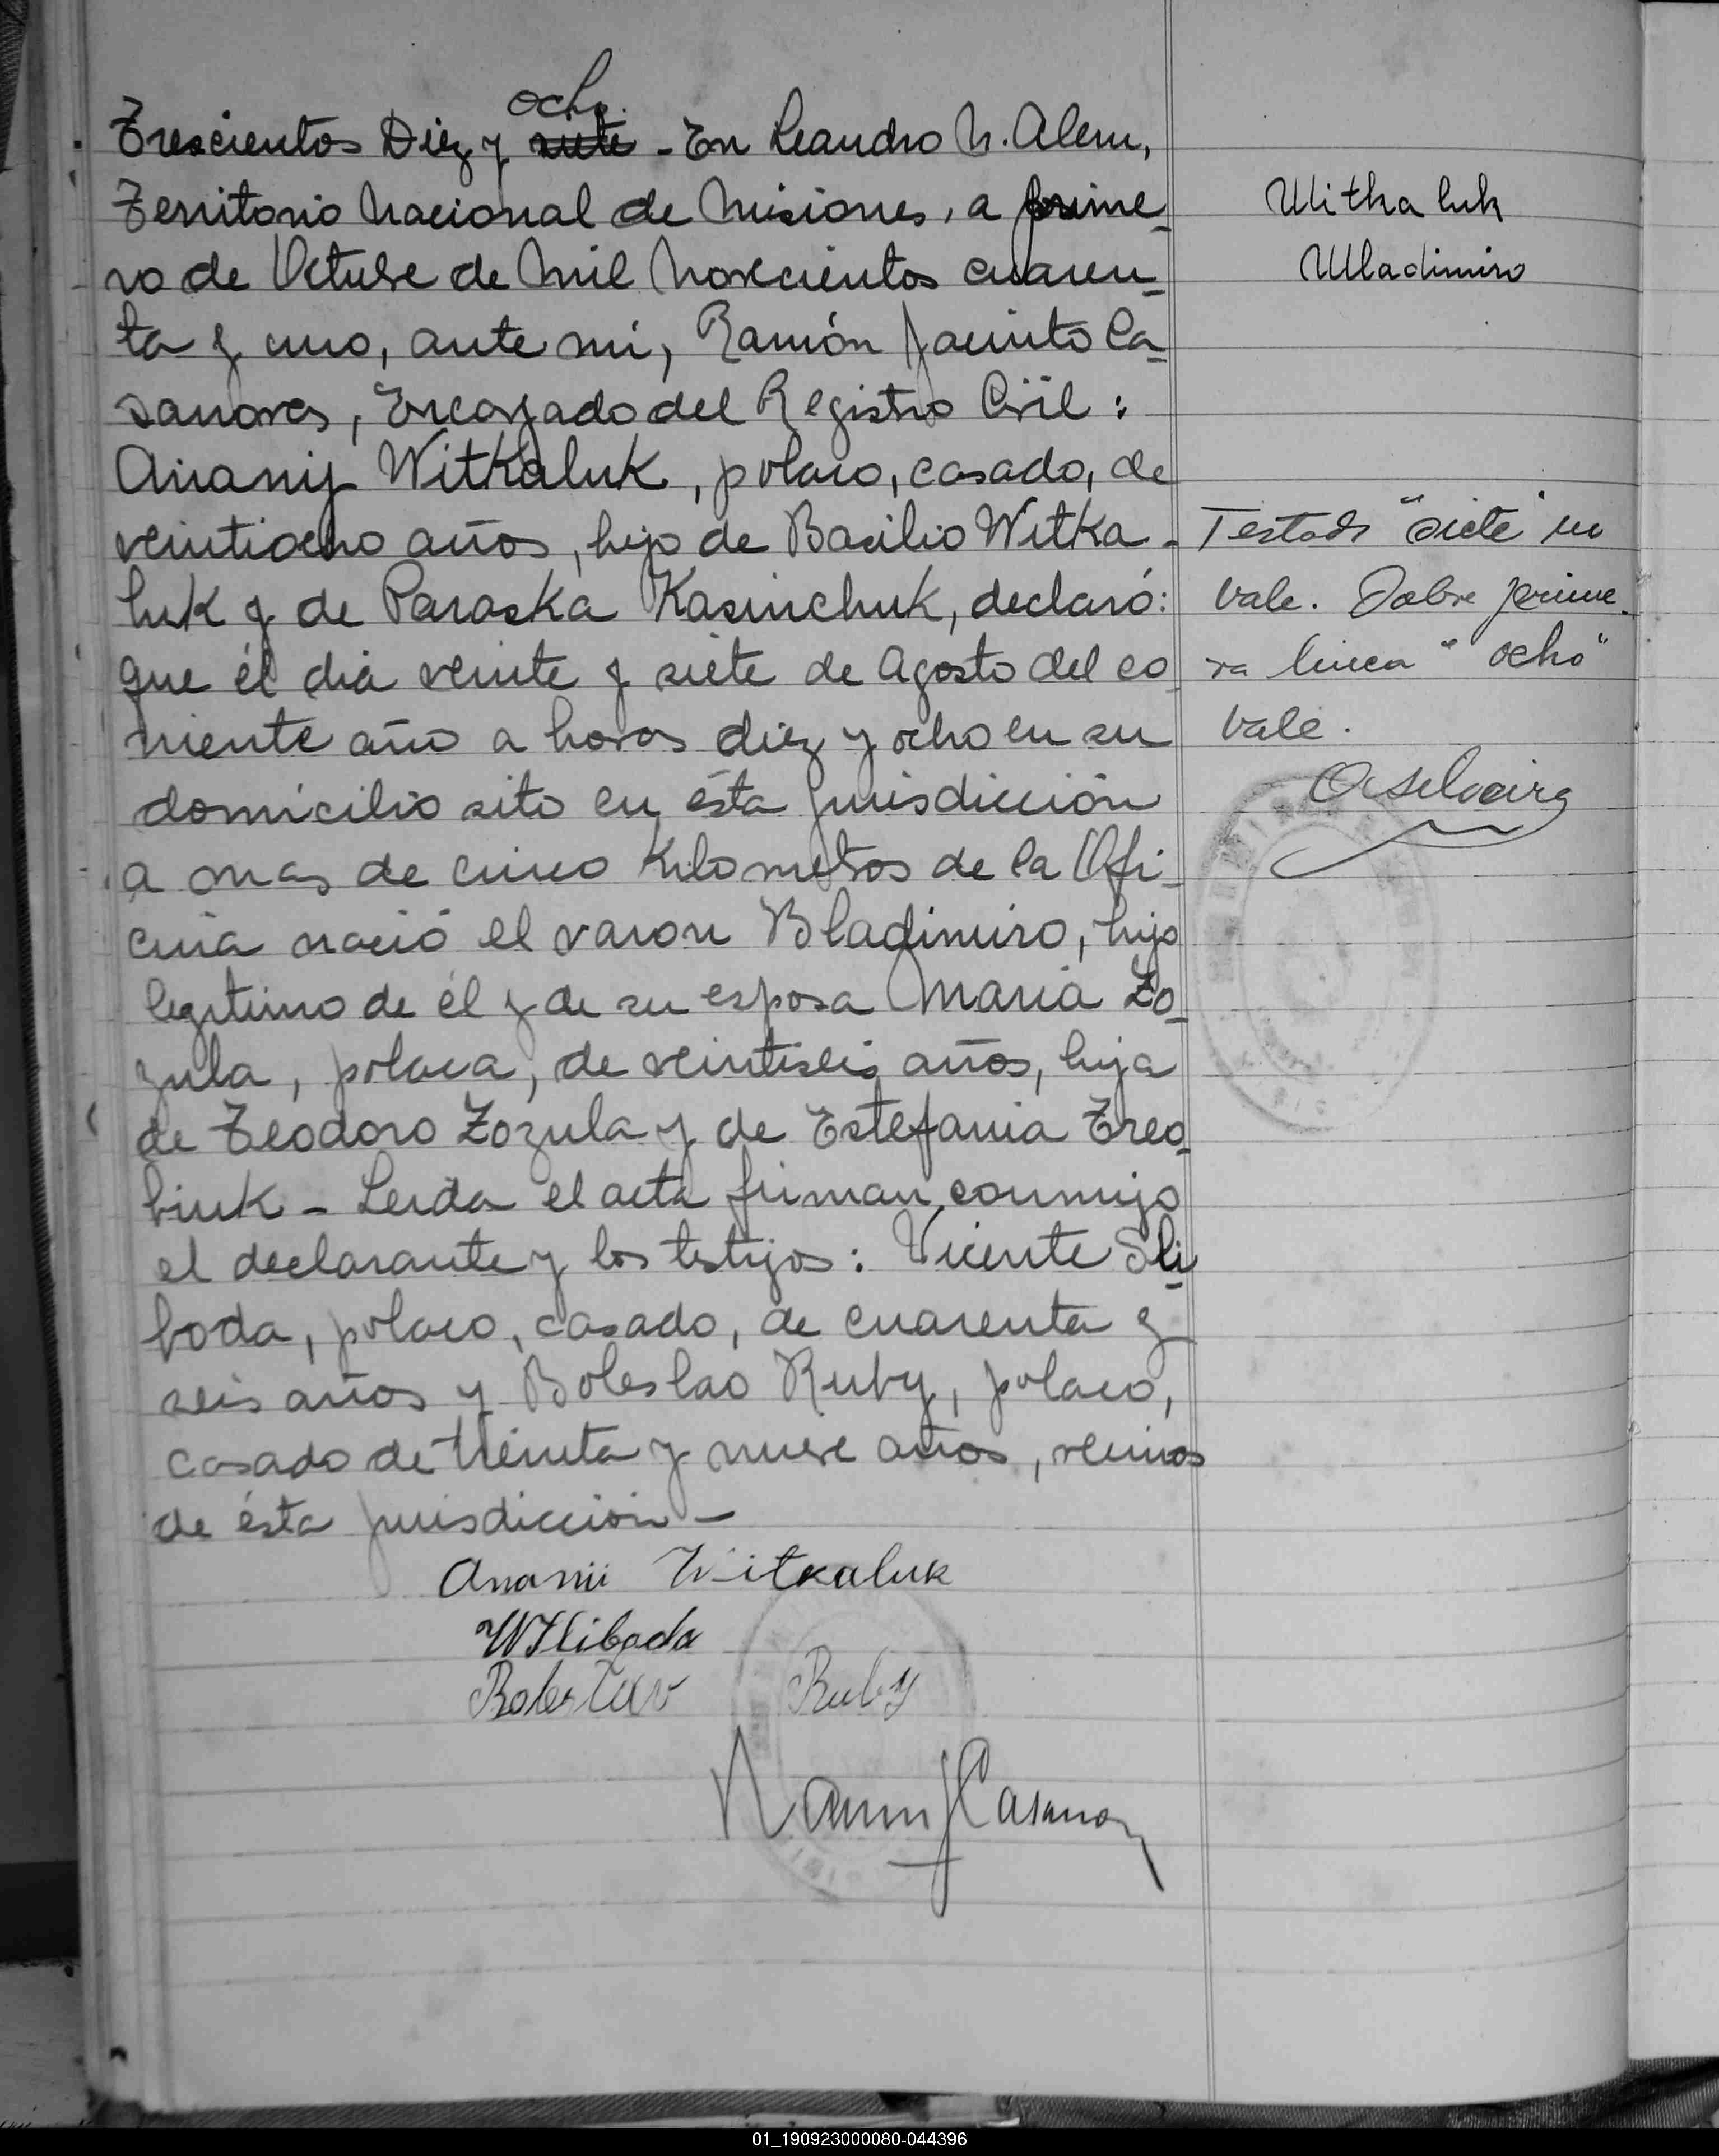 ocho
Trescientos Diez y siete - En Leandro N. Alem,
Territorio Nacional de Misiones, a prime-
ro de Octubre de Mil Novecientos cuaren-
ta y uno, ante mi, Ramón Jacinto Ca-
sanova, Encargado del Registro Civil:
Ananij Witkaluk, polaco, casado, de
veintiocho años, hijo de Basilio Witka-
luk y de Paraska Kasinchuk, declaró:
que él dia veinte y siete de Agosto del co-
rriente año a horas diez y ocho en su
domicilio sito en ésta jurisdicción
a mas de cinco Kilometros de la Ofi-
cina nació el varon Bladimiro, hijo
legitimo de él y de su esposa Maria Zo-
zula, polaca, de veintiseis años, hija
de Teodoro Zozula y de Estefania Treo-
biuk - Leida el acta firman conmigo
el declarante y los testigos: Vicente Sli-
boda, polaco, casado, de cuarenta y
seis años y Boleslao Ruby, polaco,
casado de treinta y nueve años, vecinos
de ésta jurisdiccion -
Ananii Witkaluk
W Sliboda
Bolesław Ruby
Ramon J Casanova
Witkaluk
Wladimiro
Testado "siete" no
vale. Sobre prime-
ra linea "ocho"
vale.
01_190923000080-044396